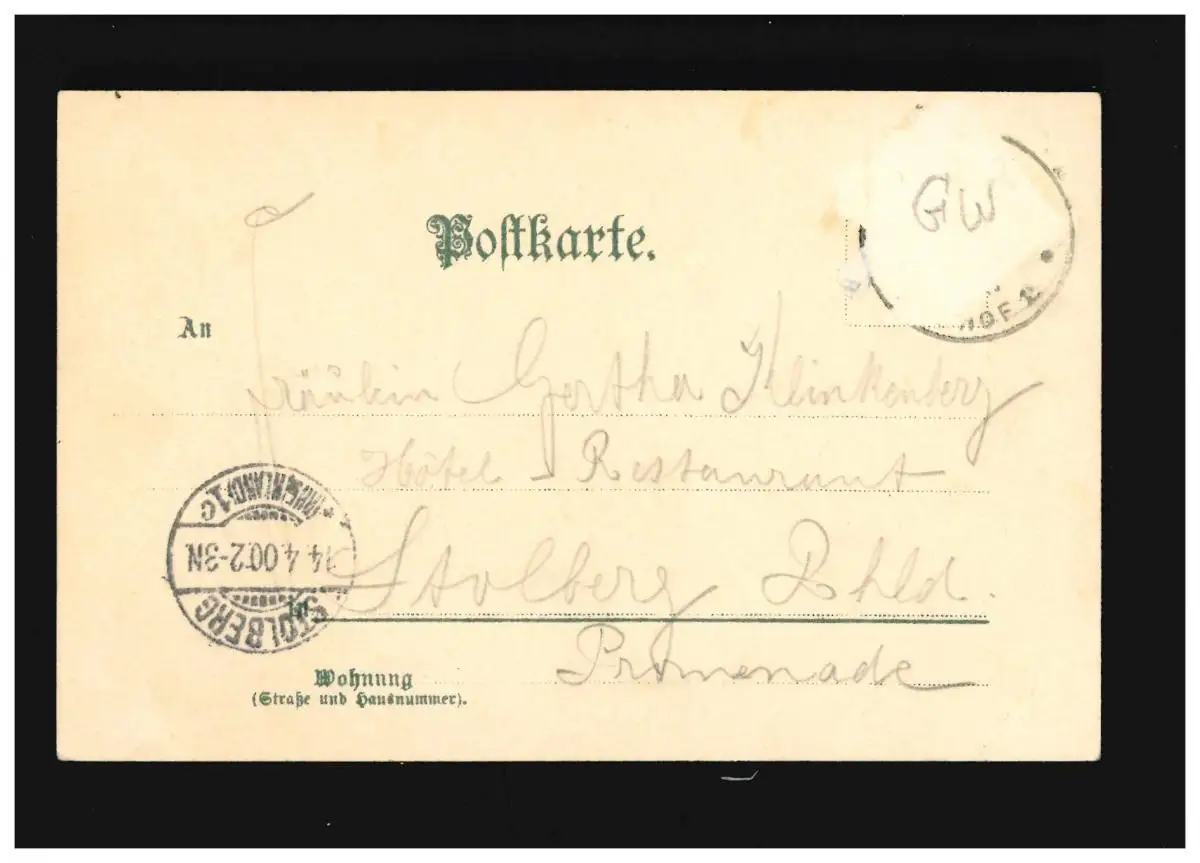 GW
Postkarte.
HOF 2
An
Fräulein Gertha Klinkenberg
Hôtel - Restaurant
in Stolberg Rhld.
Promenade
Wohnung
(Straße und Hausnummer).
STOLBERG
14.4.00.2-3N.
(RHEINLAND) 1C